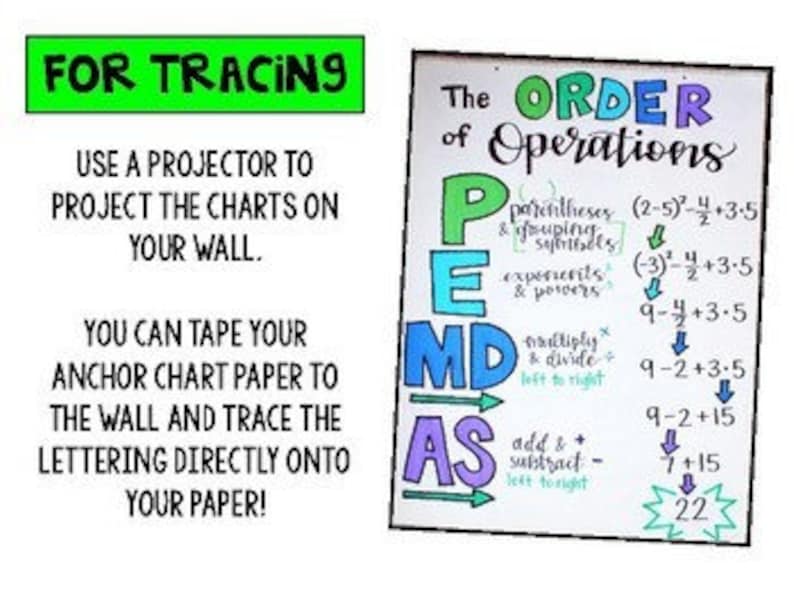 FOR TRACING
USE A PROJECTOR TO
PROJECT THE CHARTS ON
YOUR WALL.
YOU CAN TAPE YOUR
ANCHOR CHART PAPER TO
THE WALL AND TRACE THE
LETTERING DIRECTLY ONTO
YOUR PAPER!
The ORDER
of Operations
P
parentheses
& grouping
symbols
E
exponents
& powers
MD
multiply ×
& divide ÷
left to right
AS
add & +
subtract −
left to right
(2-5)²-4/2+3·5
(-3)²-4/2+3·5
9-4/2+3·5
9-2+3·5
9-2+15
7+15
22